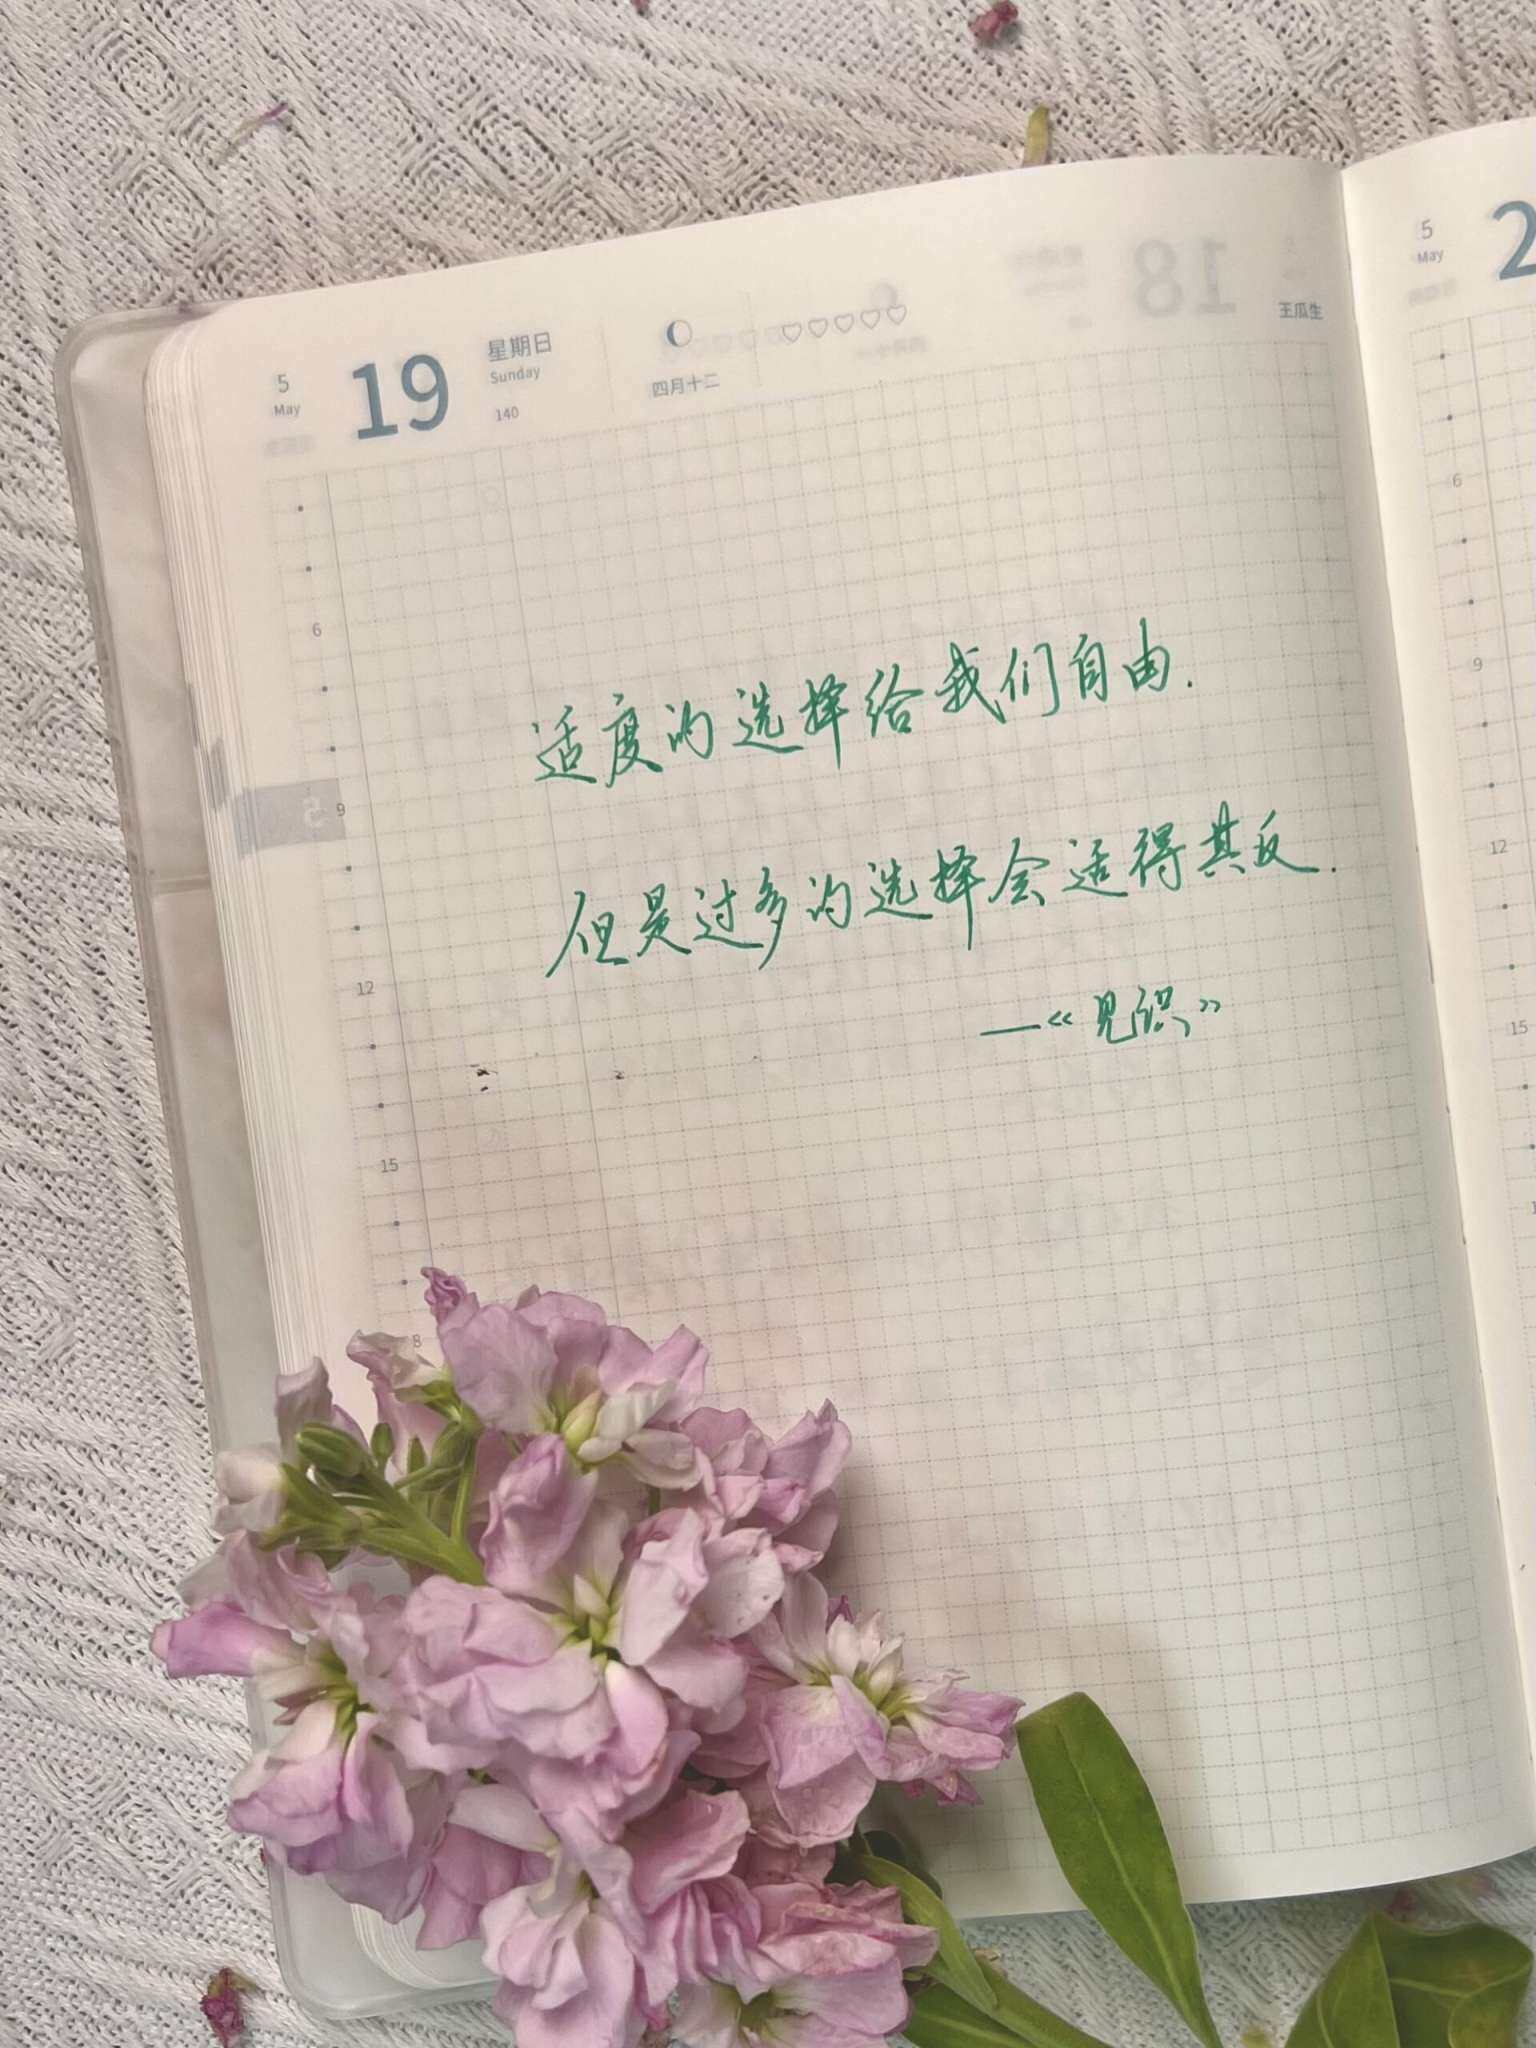 5
May
19
星期日
Sunday
140
四月十二
王瓜生
6
适度的选择给我们自由.
9
但是过多的选择会适得其反.
12
—《见识》
15
8
5
May
2
6
9
12
15
18
5